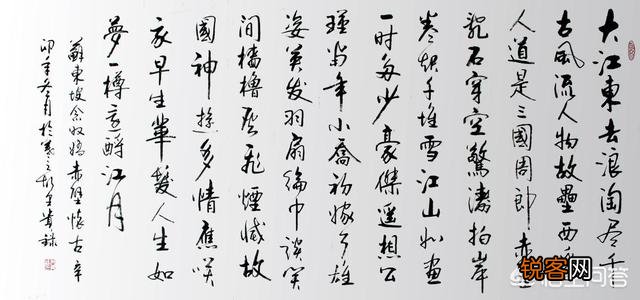 大江東去浪淘盡千
古風流人物故壘西
人道是三國周郎赤
亂石穿空驚濤拍岸
卷起千堆雪江山如畫
一時多少豪傑遙想公
瑾當年小喬初嫁了雄
姿英发羽扇綸巾談笑
間檣櫓灰飛煙滅故
國神遊多情應笑
我早生華髮人生如
夢一樽還酹江月
蘇東坡念奴嬌赤壁懷古辛
卯年冬月於
锐客网